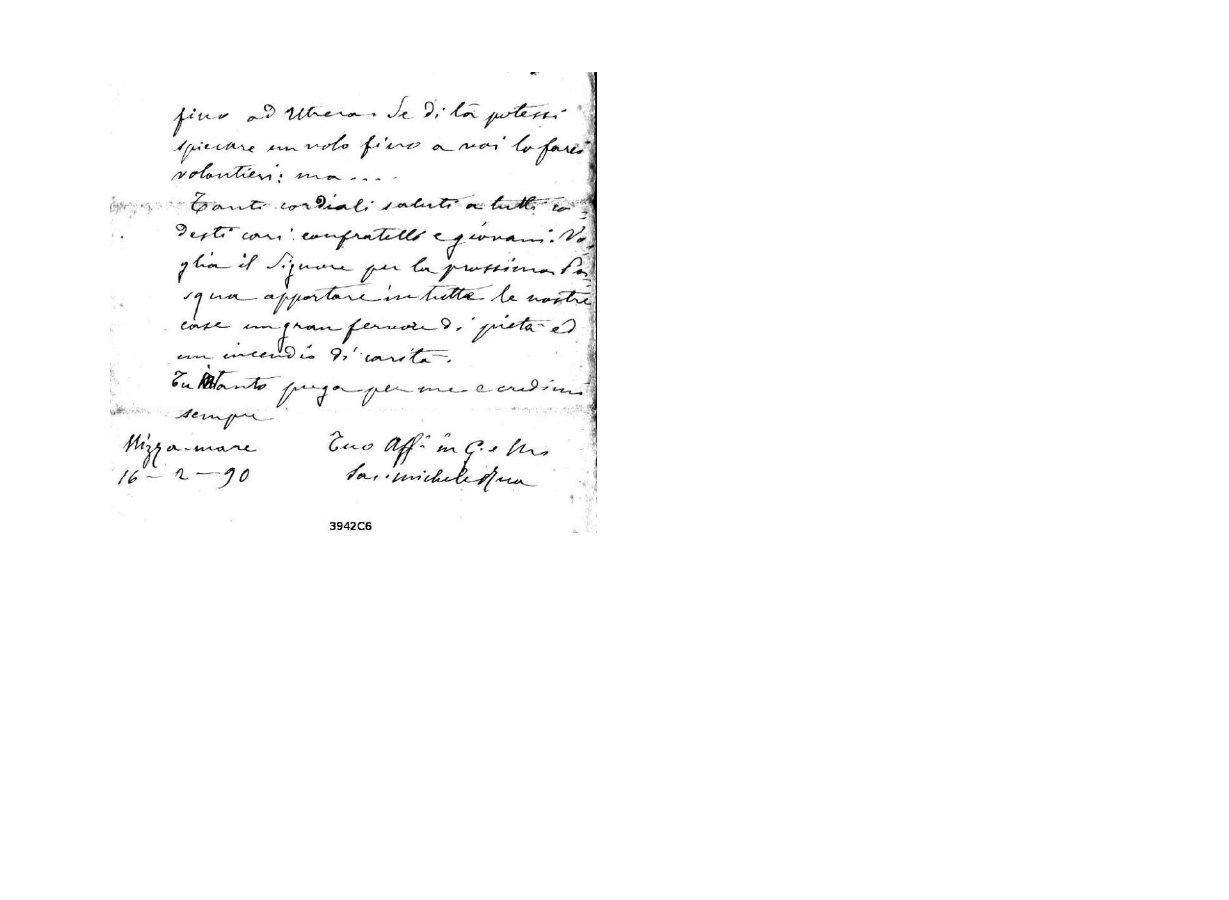 fino ad Utrera. Se di là potessi
spiccare un volo fino a voi lo farei
volontieri: ma....
Tanti cordiali saluti a tutti co-
desti cari confratelli e giovani. Vo-
glia il Signore per la prossima Pa-
squa apportare in tutte le nostre
case un gran fervore di pietà ed
un incendio di carità.
Tu intanto prega per me e credimi
sempre
Nizza-mare Tuo Aff. in G. e M.
16-2-90 Sac. Michele Rua
3942C6